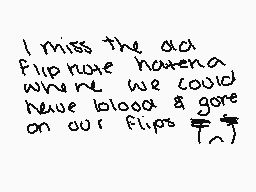 I miss the old
flipnote hatena
where we could
have blood & gore
on our flips